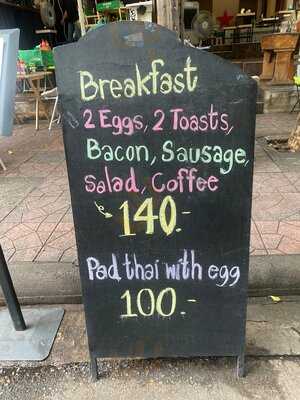 Breakfast
2 Eggs, 2 Toasts,
Bacon, Sausage,
Salad, Coffee
140.-
Pad thai with egg
100.-